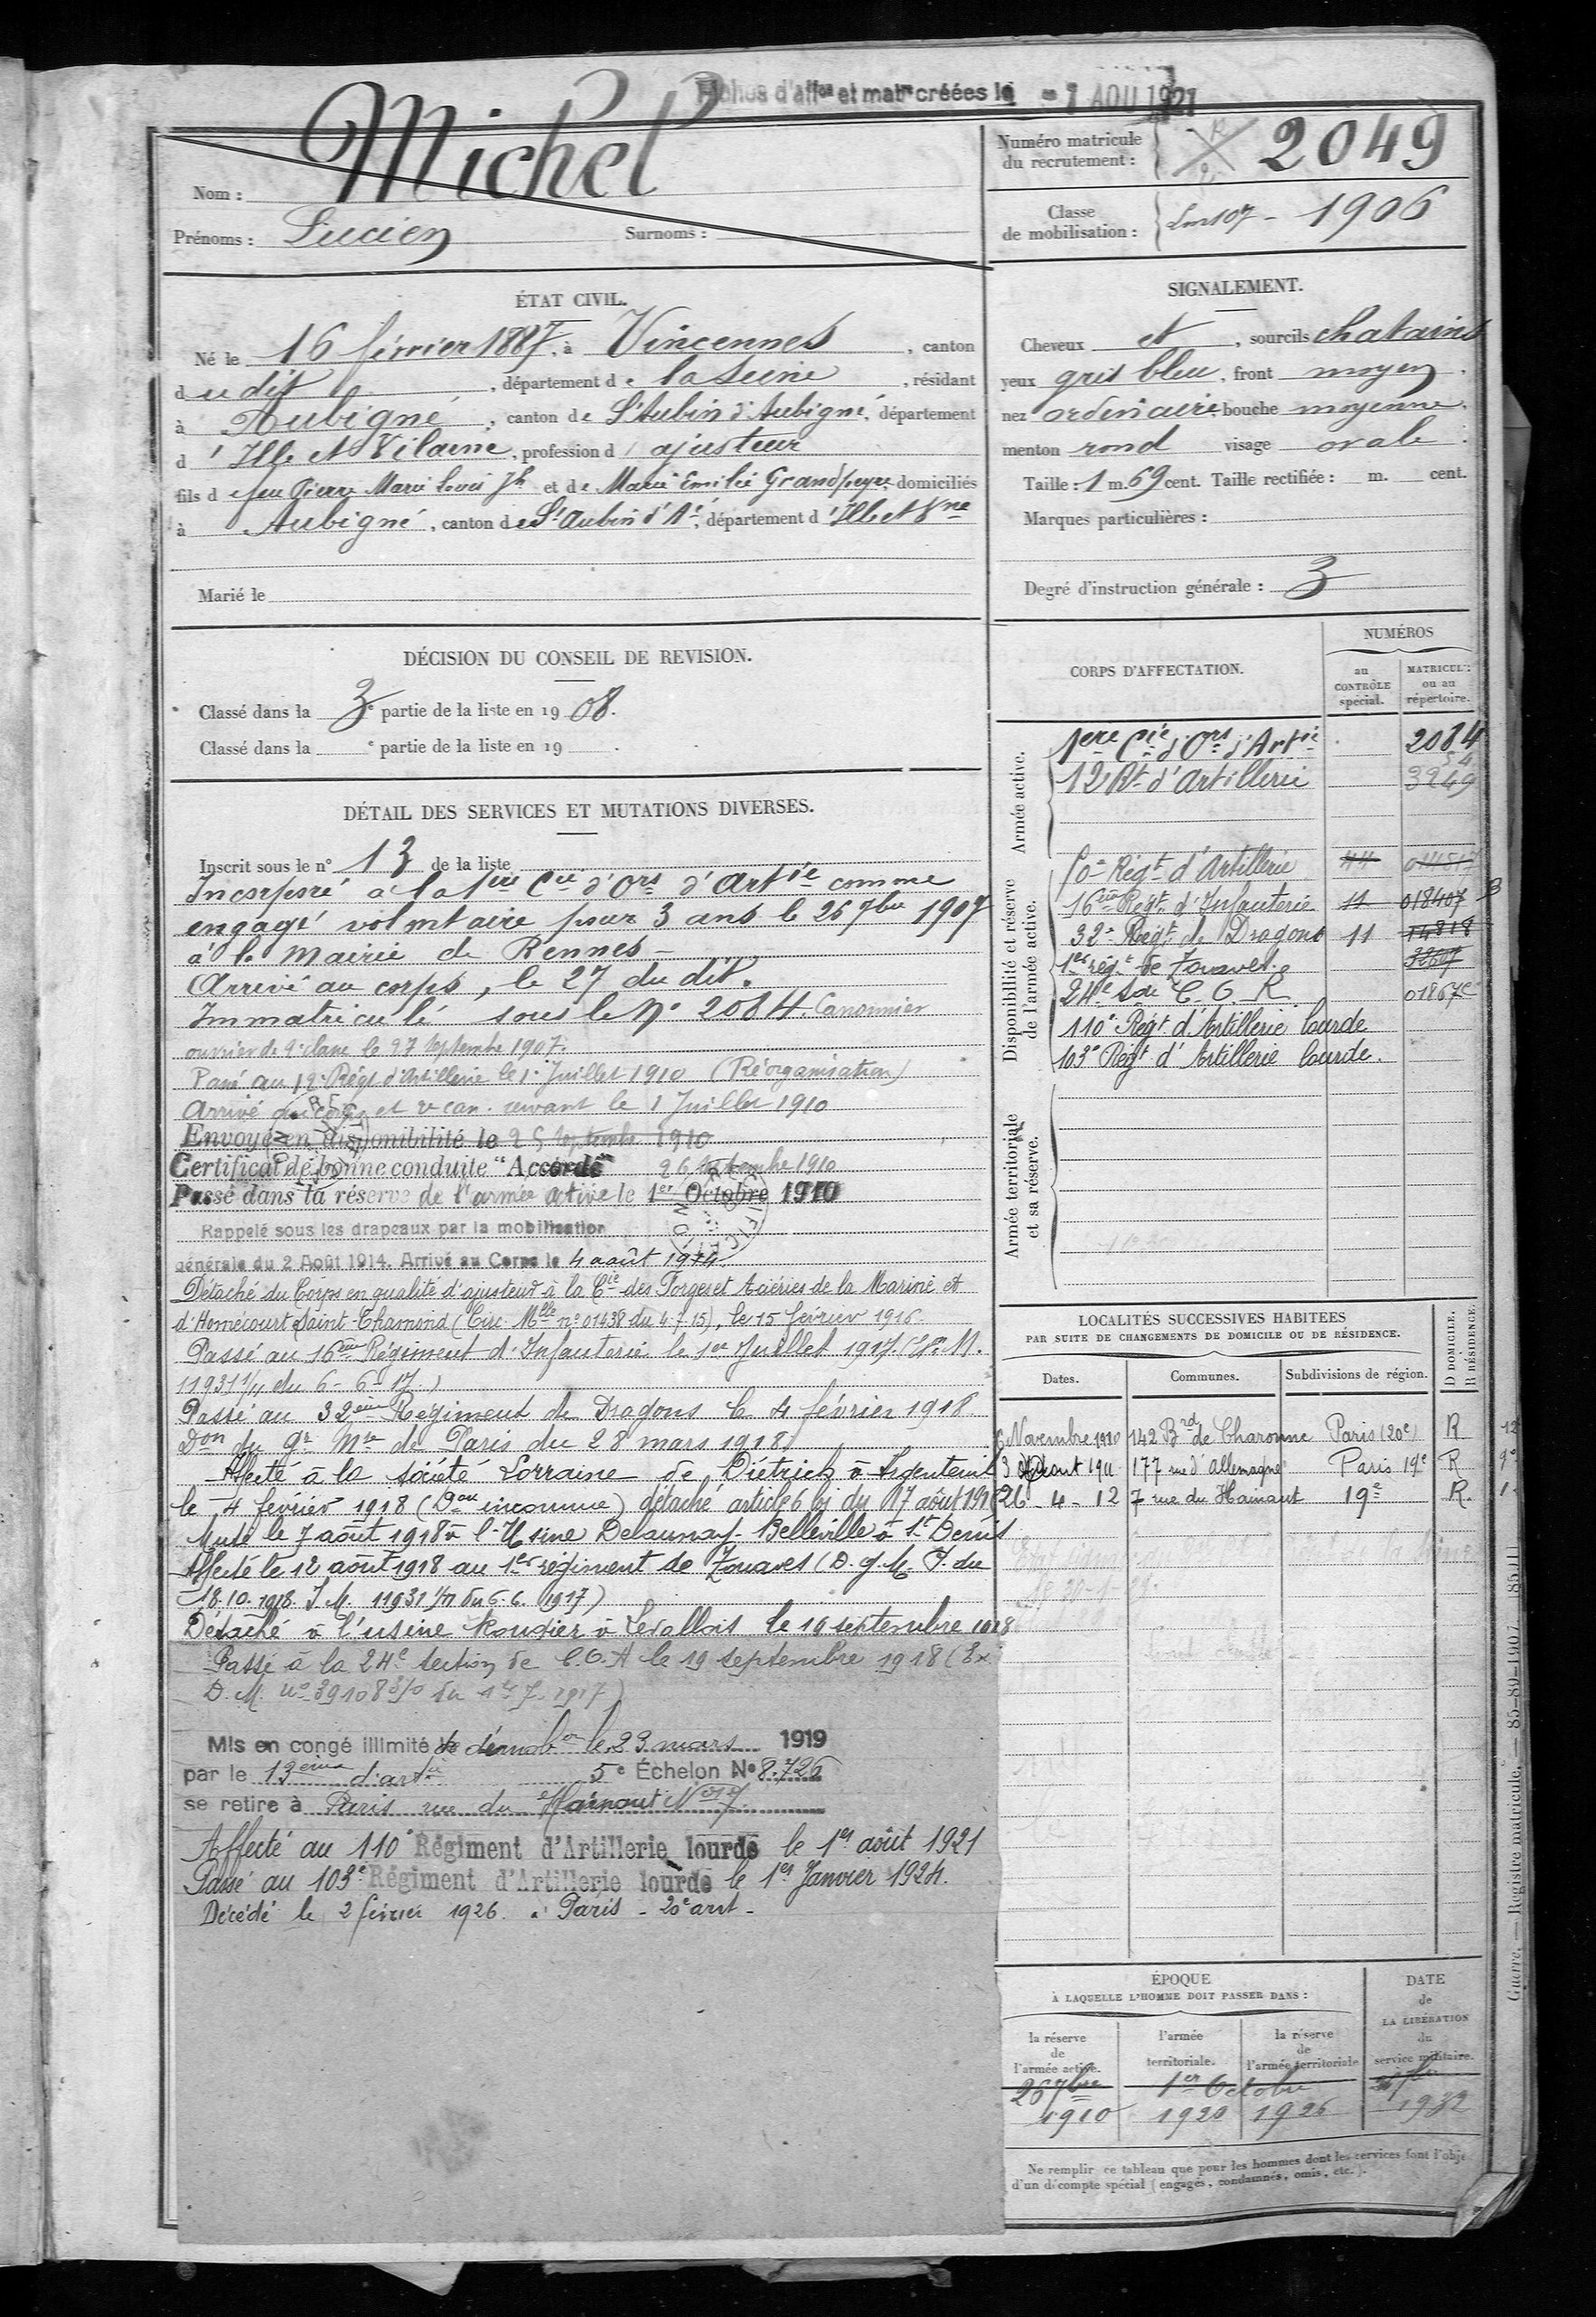 Fiches d'aff^on et mat^re créées le - 1 AOU 1921
Michel
Nom :
Prénoms : Lucien Surnoms :
Numéro matricule du recrutement : 2049
Classe de mobilisation : 1906
ÉTAT CIVIL.
Né le 16 février 1887, à Vincennes, canton
dudit, département de la Seine, résidant
à Aubigné, canton de St Aubin d'Aubigné, département
d'Ille et Vilaine, profession d'ajusteur
fils de feu Pierre Marie Louis Jh et de Marie Emilie Grandpeyre, domiciliés
à Aubigné, canton de St Aubin d'Aé, département d'Ille et Vne
Marié le
SIGNALEMENT.
Cheveux et, sourcils chatains
yeux gris bleu, front moyen.
nez ordinaire, bouche moyenne.
menton rond visage ovale.
Taille : 1 m. 69 cent. Taille rectifiée : m. cent.
Marques particulières :
Degré d'instruction générale : 3
DÉCISION DU CONSEIL DE REVISION.
Classé dans la 3e partie de la liste en 1908.
Classé dans la e partie de la liste en 19 .
DÉTAIL DES SERVICES ET MUTATIONS DIVERSES.
Inscrit sous le n° 13 de la liste
Incorporé à la 1ère Cie d'Ors d'Artie comme
engagé volontaire pour 3 ans le 26 7bre 1907
à la mairie de Rennes -
Arrivé au corps, le 27 du dit.
Immatriculé sous le No 2084. Canonnier
ouvrier de 2e classe le 27 Septembre 1907.
Passé au 12e Régt d'Artillerie le 1er Juillet 1910 (Réorganisation)
Arrivé au corps et 2e can. servant le 1 Juillet 1910
Envoyé en disponibilité le 25 Septembre 1910
Certificat de bonne conduite "Accordé" 26 Septembre 1910
Passé dans la réserve de l'armée active le 1er Octobre 1910
Rappelé sous les drapeaux par la mobilisation
générale du 2 Août 1914. Arrivé au Corps le 4 août 1914.
Détaché du Corps en qualité d'ajusteur à la Cie des Forges et Aciéries de la Marine et
d'Homécourt Saint-Chamond (Circ. Mlle n° 01438 du 4-7-15), le 15 février 1916.
Passé au 16ème Régiment d'Infanterie le 1er Juillet 1917 (
11931 1/11 du 6-6-17.)
Passé au 32ème Régiment de Dragons le 4 février 1918
Don du Gr Mre de Paris du 28 mars 1918
Affecté à la société Lorraine de Diétrich à Argenteuil
le 4 février 1918 (Don inconnue) détaché article 6 loi du 17 août 1915
Muté le 7 août 1918 à l'Usine Delaunay-Belleville à St Denis
Affecté le 12 août 1918 au 1er régiment de Zouaves (D. G. M. P. du
18.10.1918. I M. 11931 1/11 du 6.6.1917)
Détaché à l'usine à Levallois le 10 septembre 1918
Passé à la 24e section de C.O.A le 19 septembre 1918 (Ex
D. M. no 39108 3/10 du 1er 7. 1917)
Mis en congé illimité de démobon le 23 mars 1919
par le 13ème d'artie 5e Échelon No 8.726
se retire à Paris rue du Hainaut No 7
Affecté au 110e Régiment d'Artillerie lourde le 1er août 1921
Passé au 103e Régiment d'Artillerie lourde le 1er Janvier 1924.
Décédé le 2 février 1926 à Paris - 20e arrt -
CORPS D'AFFECTATION.
NUMÉROS
au CONTRÔLE spécial.
MATRICULE ou au répertoire.
Armée active.
1ère Cie d'Ors d'Artie 2084
12 Rt d'Artillerie 3249
Disponibilité et réserve de l'armée active.
Régt d'Artillerie 44
16ème Régt d'Infanterie 11 018407
32e Régt de Dragons 11 14818
1er régt de Zouaves 32607
24e Son C. O. A.
110e Régt d'Artillerie lourde
103e Régt d'Artillerie lourde.
Armée territoriale et sa réserve.
LOCALITÉS SUCCESSIVES HABITÉES
PAR SUITE DE CHANGEMENTS DE DOMICILE OU DE RÉSIDENCE.
D DOMICILE.
R RÉSIDENCE.
Dates. Communes. Subdivisions de région.
6 Novembre 1910 142 Brd de Charonne Paris (20e) R
3 Aout 1911 177 rue d'Allemagne Paris 19e R
26-4-12 7 rue du Hainaut 19e R.
ÉPOQUE
À LAQUELLE L'HOMME DOIT PASSER DANS :
la réserve de l'armée active.
l'armée territoriale.
la réserve de l'armée territoriale
DATE de LA LIBÉRATION du service militaire.
26 7bre 1er Octobre
1910 1920 1926 1932
Ne remplir ce tableau que pour les hommes dont les services font l'obje
d'un décompte spécial (engagés, condamnés, omis, etc.).
Guerre. — Registre matricule.